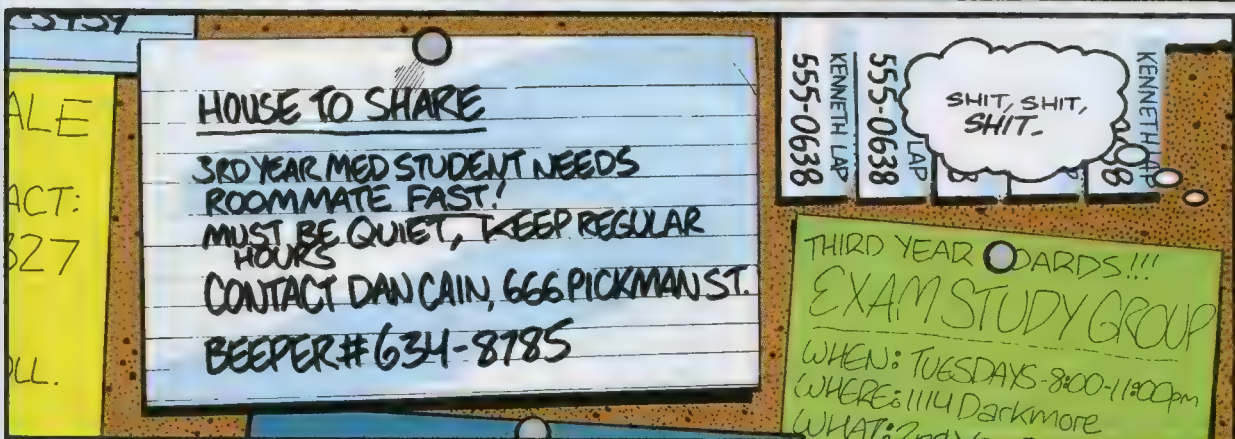 ALE
ACT:
327
LL.
HOUSE TO SHARE
3RD YEAR MED STUDENT NEEDS
ROOMMATE FAST!
MUST BE QUIET, KEEP REGULAR
HOURS
CONTACT DAN CAIN, 666 PICKMAN ST.
BEEPER# 634-8785
KENNETH LAP
555-0638
555-0638
LAP
KENNETH
SHIT, SHIT,
SHIT.
THIRD YEAR BOARDS!!!
EXAM STUDY GROUP
WHEN: TUESDAYS-8:00-11:00pm
WHERE: 1114 Darkmore
WHAT: 2nd